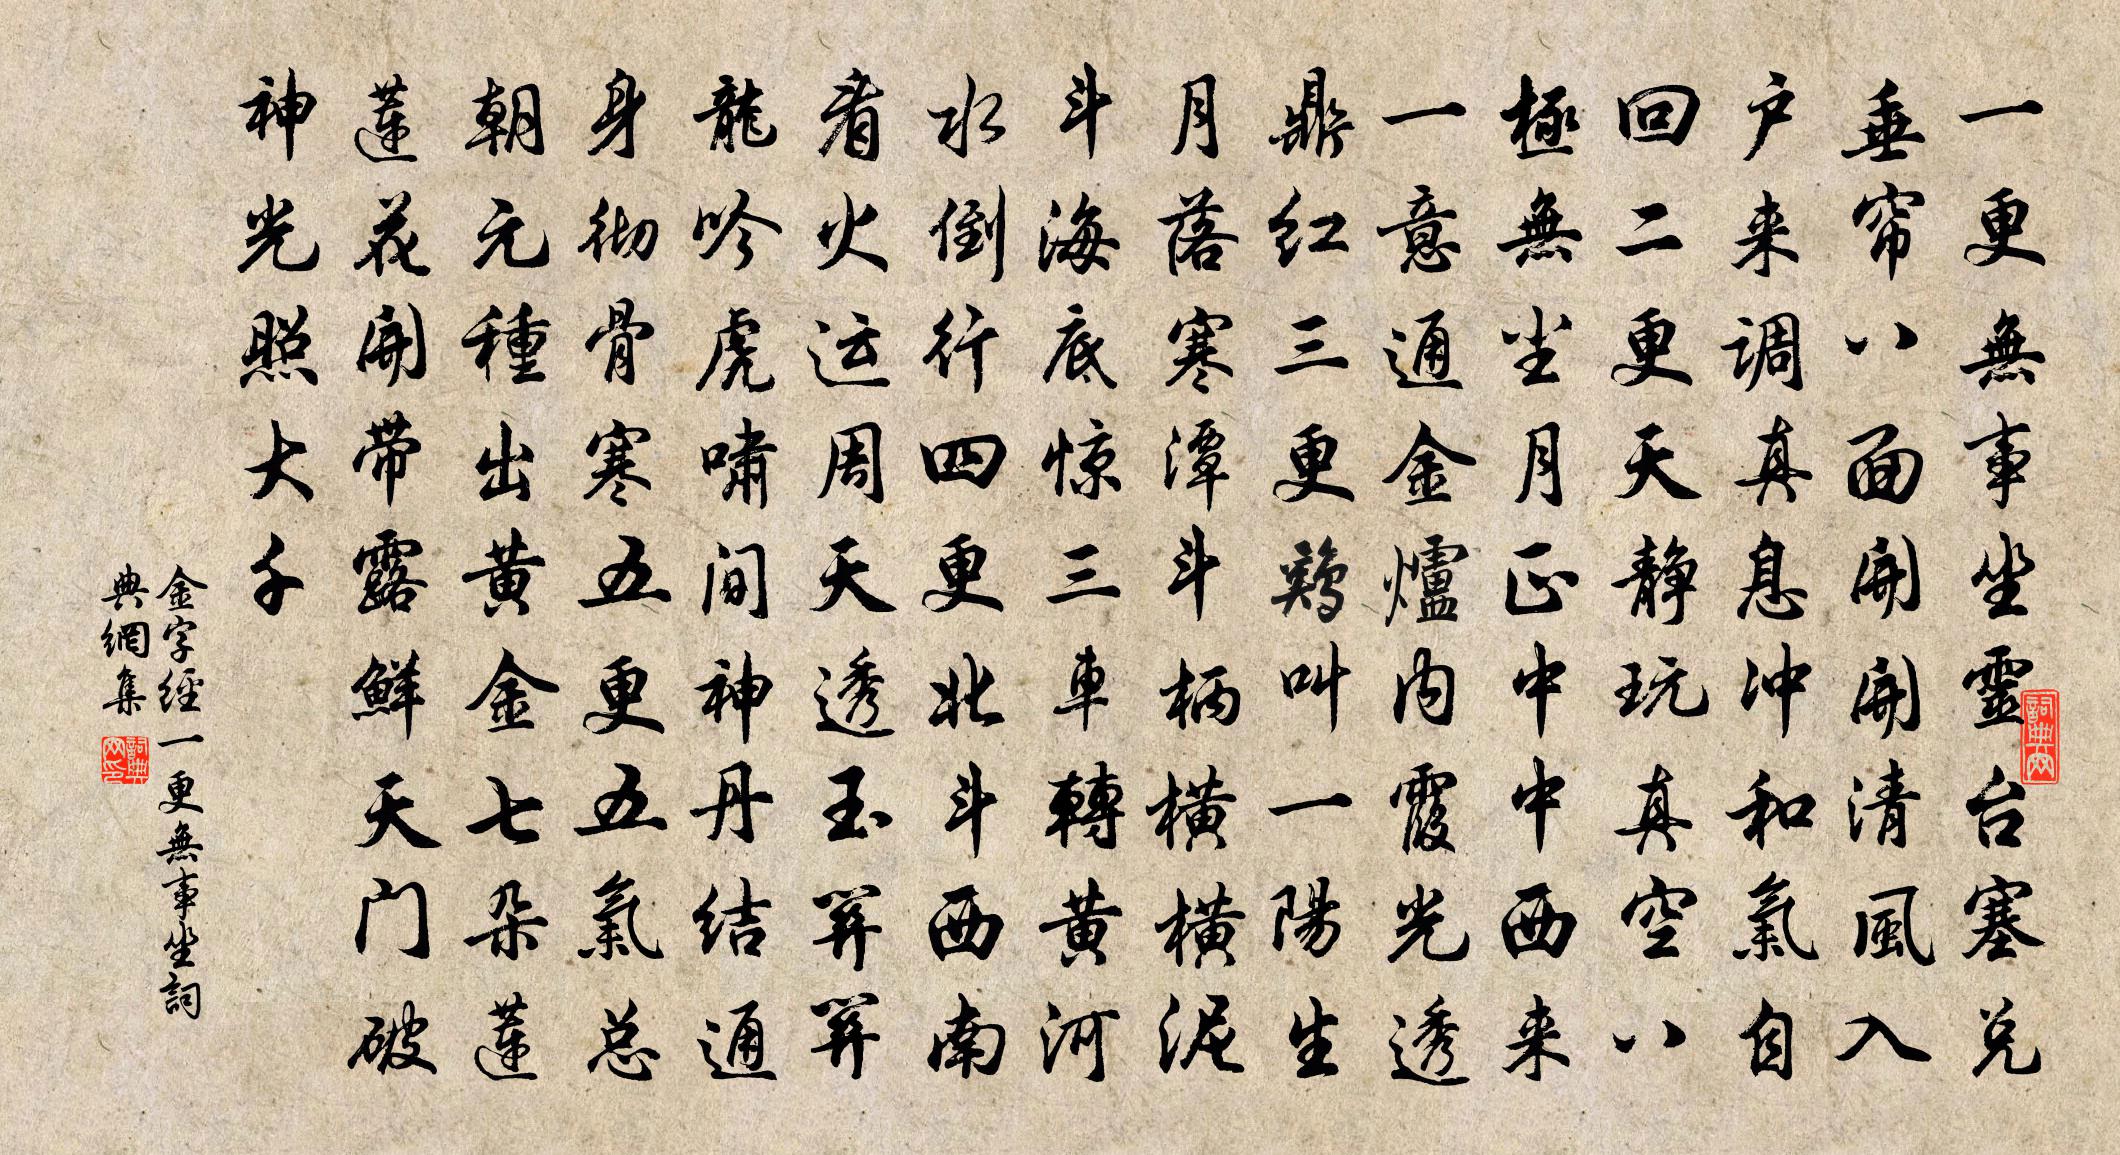 一更無事坐靈台塞兑
垂帘八面開開清風入
户来调真息冲和氣自
回二更天静玩真空八
極無尘月正中中西来
一意通金爐内霞光透
鼎红三更鷄叫一陽生
月落寒潭斗柄橫橫泥
斗海底惊三車轉黄河
水倒行四更北斗西南
看火运周天透玉關關
龍吟虎嘯间神丹结通
身彻骨寒五更五氣总
朝元種出黄金七朵蓮
蓮花開带露鲜天门破
神光照大千
金字經一更無事坐詞
典網集